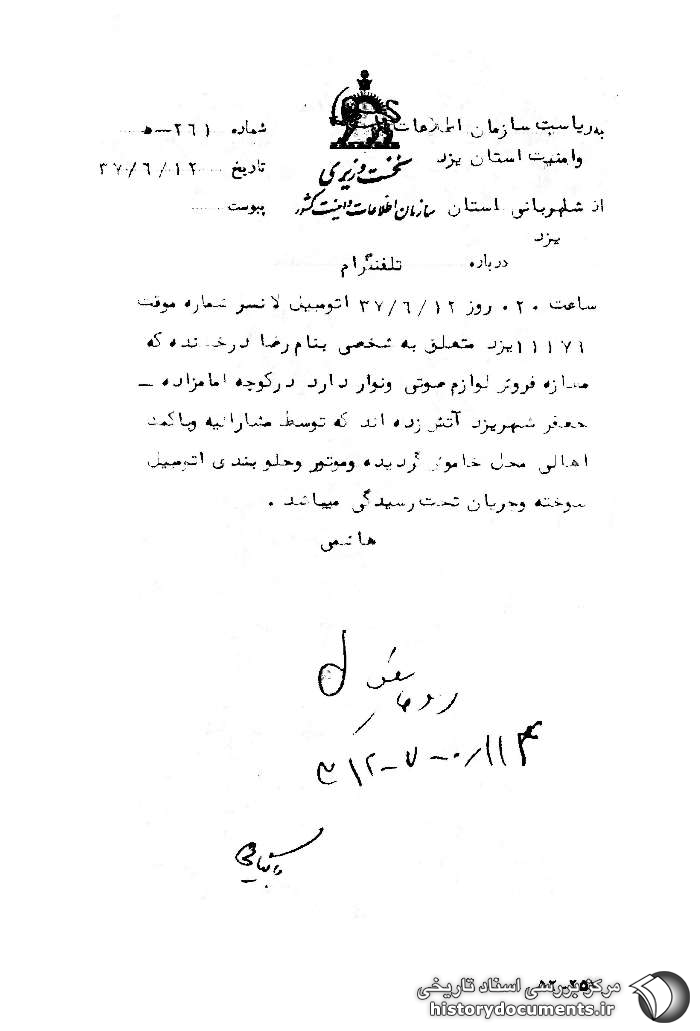 به ریاست سازمان اطلاعات
وامنیت استان یزد
از شهربانی استان
یزد
نخست وزیری
سازمان اطلاعات و امنیت کشور
شماره ۲۶۱-ه
تاریخ ۳۷/۶/۱۲
پیوست
درباره تلفنگرام
ساعت ۰۲۰ روز ۳۷/۶/۱۲ اتومبیل لانسر شماره موقت
۱۱۱۷۶ یزد متعلق به شخصی بنام رضا درخشنده که
مغازه فروش لوازم صوتی ونوار دارد درکوچه امامزاده -
جعفر شهریزد آتش زده اند که توسط مشارالیه وباکمک
اهالی محل خاموش گردیده وموتور وجلو بندی اتومبیل
سوخته وجریان تحت رسیدگی میباشد .
هاشمی
مرکز بررسی اسناد تاریخی
historydocuments.ir